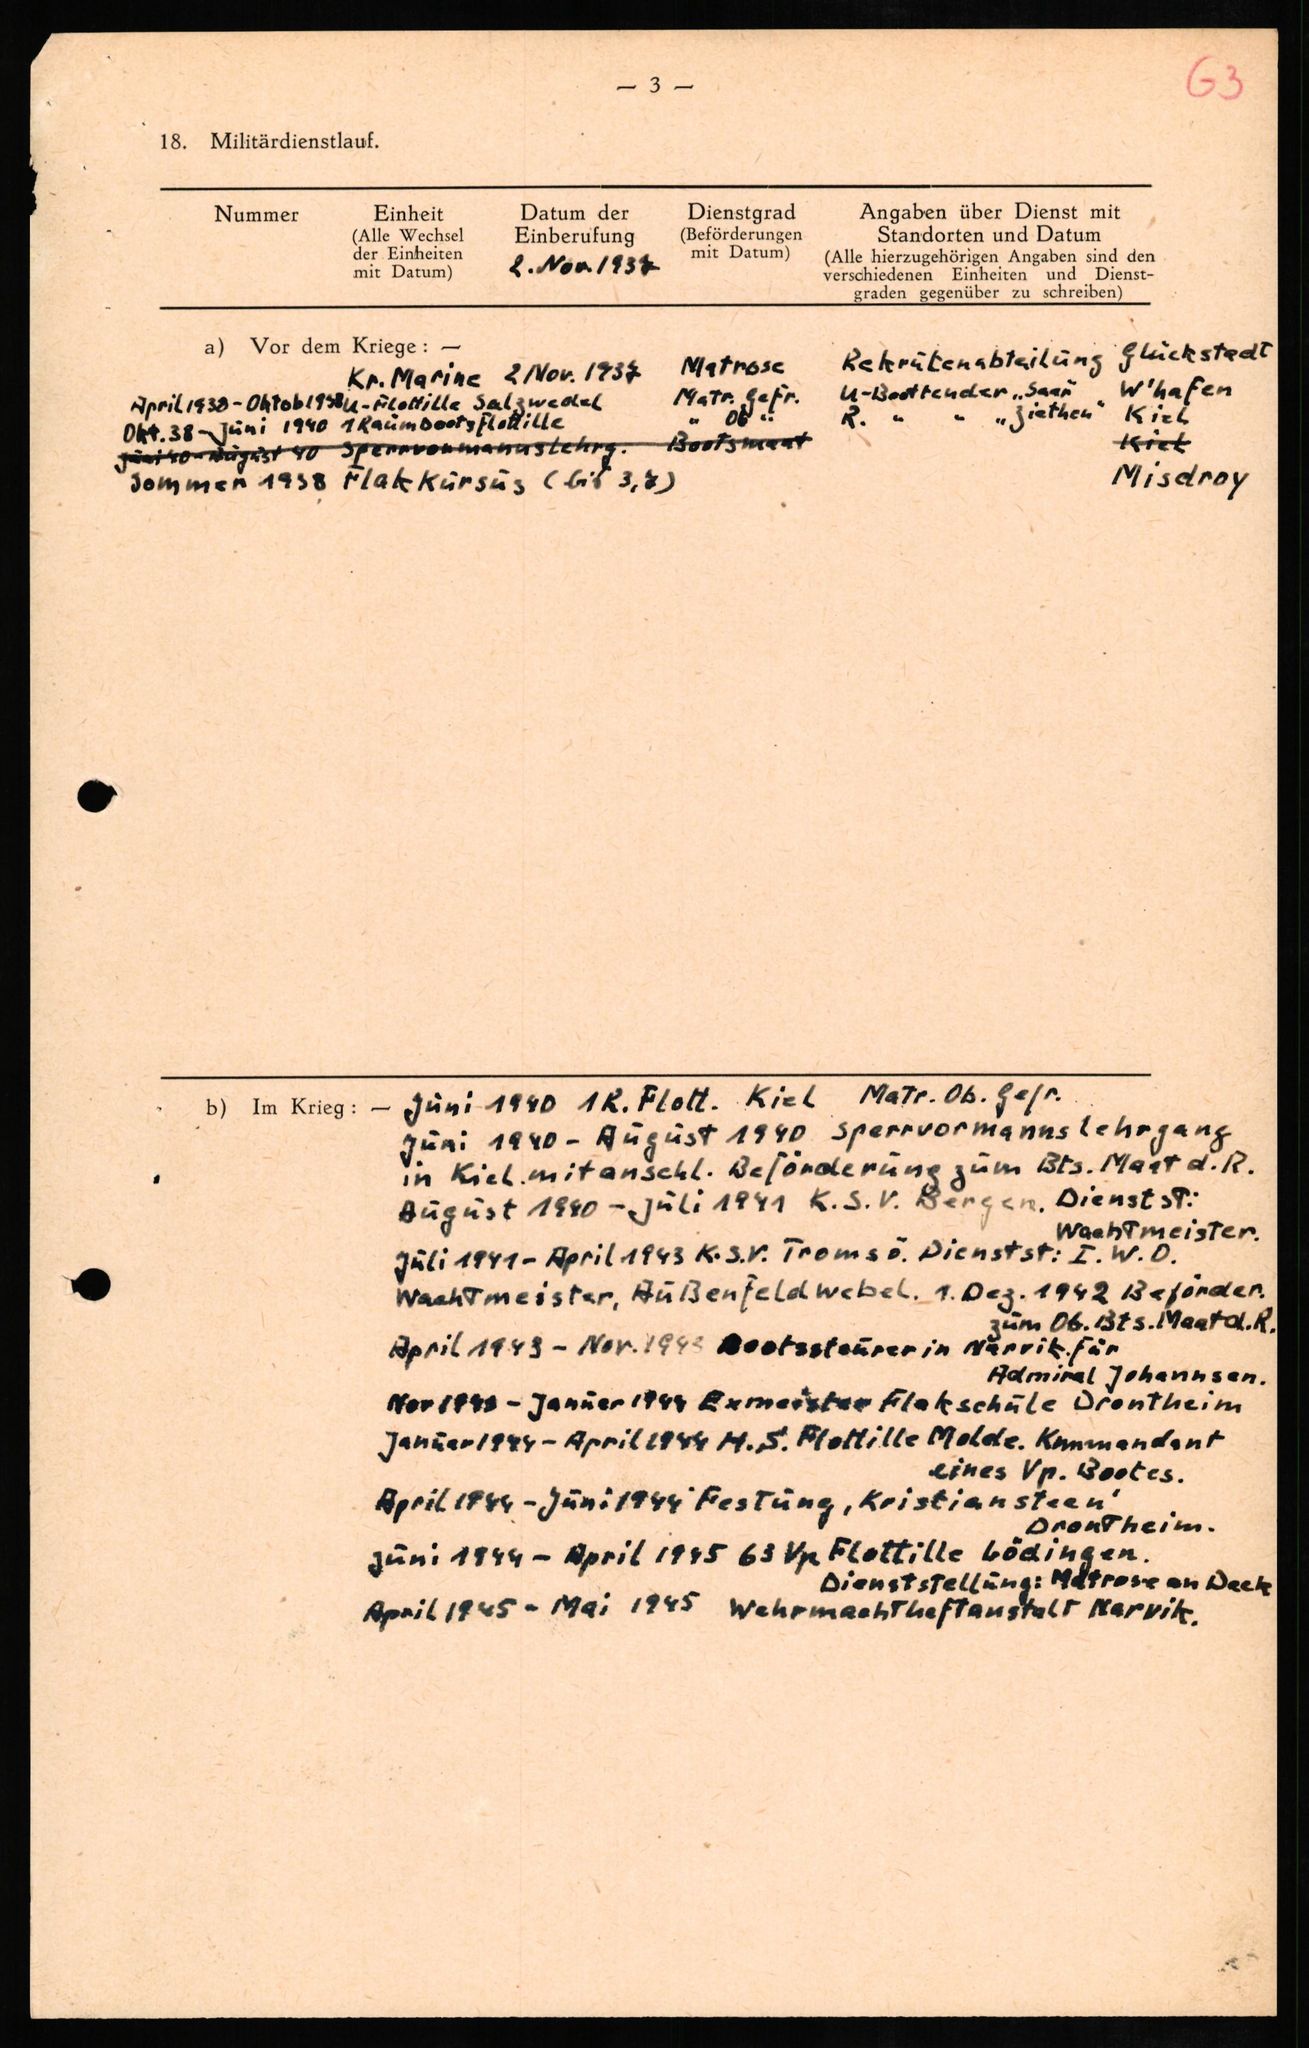 — 3 —
G3
18. Militärdienstlauf.
Nummer
Einheit
(Alle Wechsel
der Einheiten
mit Datum)
Datum der
Einberufung
2. Nov. 1937
Dienstgrad
(Beförderungen
mit Datum)
Angaben über Dienst mit
Standorten und Datum
(Alle hierzugehörigen Angaben sind den
verschiedenen Einheiten und Dienst-
graden gegenüber zu schreiben)
a) Vor dem Kriege: —
Kr. Marine 2 Nov. 1937 Matrose Rekrutenabteilung Glückstadt
April 1938 - Oktob 1938 U-Flottille Salzwedel Matr. Gefr. U-Boottender „Saar" W'hafen
Okt. 38 - Juni 1940 1 Raümbootsflottille " Ob " R. " " „Ziethen" Kiel
Juni 40 - August 40 Sperrvormannslehrg. Bootsmaat Kiel
Sommer 1938 Flakkursus (bis 3,7) Misdroy
b) Im Krieg: — Juni 1940 1 R. Flott. Kiel Matr. Ob. Gefr.
Juni 1940 - August 1940 Sperrvormannslehrgang
in Kiel. mit anschl. Beförderung zum Bts. Maat d. R.
August 1940 - Juli 1941 K.S.V. Bergen. Dienstst:
Wachtmeister.
Juli 1941 - April 1943 K.S.V. Tromsö. Dienstst: I. W. O.
Wachtmeister, Außenfeldwebel. 1. Dez. 1942 Beförder.
zum Ob. Bts. Maat d. R.
April 1943 - Nov. 1943 Bootssteurer in Narvik für
Admiral Johannsen.
Nov 1943 - Januar 1944 Exmeister Flakschule Drontheim
Januar 1944 - April 1944 H.S. Flottille Molde. Kommandant
eines Vp. Bootes.
April 1944 - Juni 1944 Festung ‚Kristiansteen'
Drontheim.
Juni 1944 - April 1945 63 Vp Flottille Lödingen.
Dienststellung: Matrose an Deck
April 1945 - Mai 1945 Wehrmachtheftanstalt Narvik.